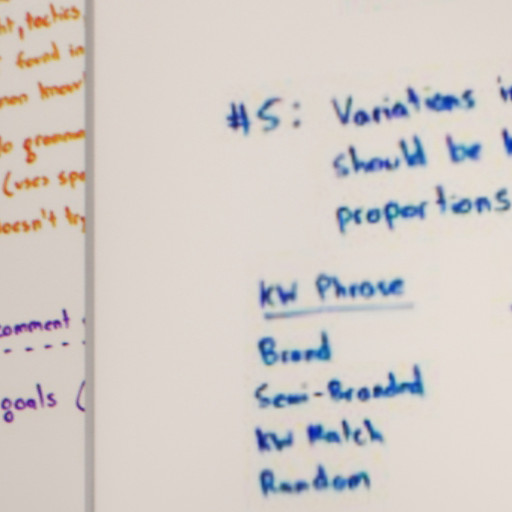 ht, tactics
found in
mon know
do gramma
(uses spe
doesn't try
comment
goals (
#5: Variations i
should be k
proportions
KW Phrase
Brand
Semi-Branded
KW Match
Random